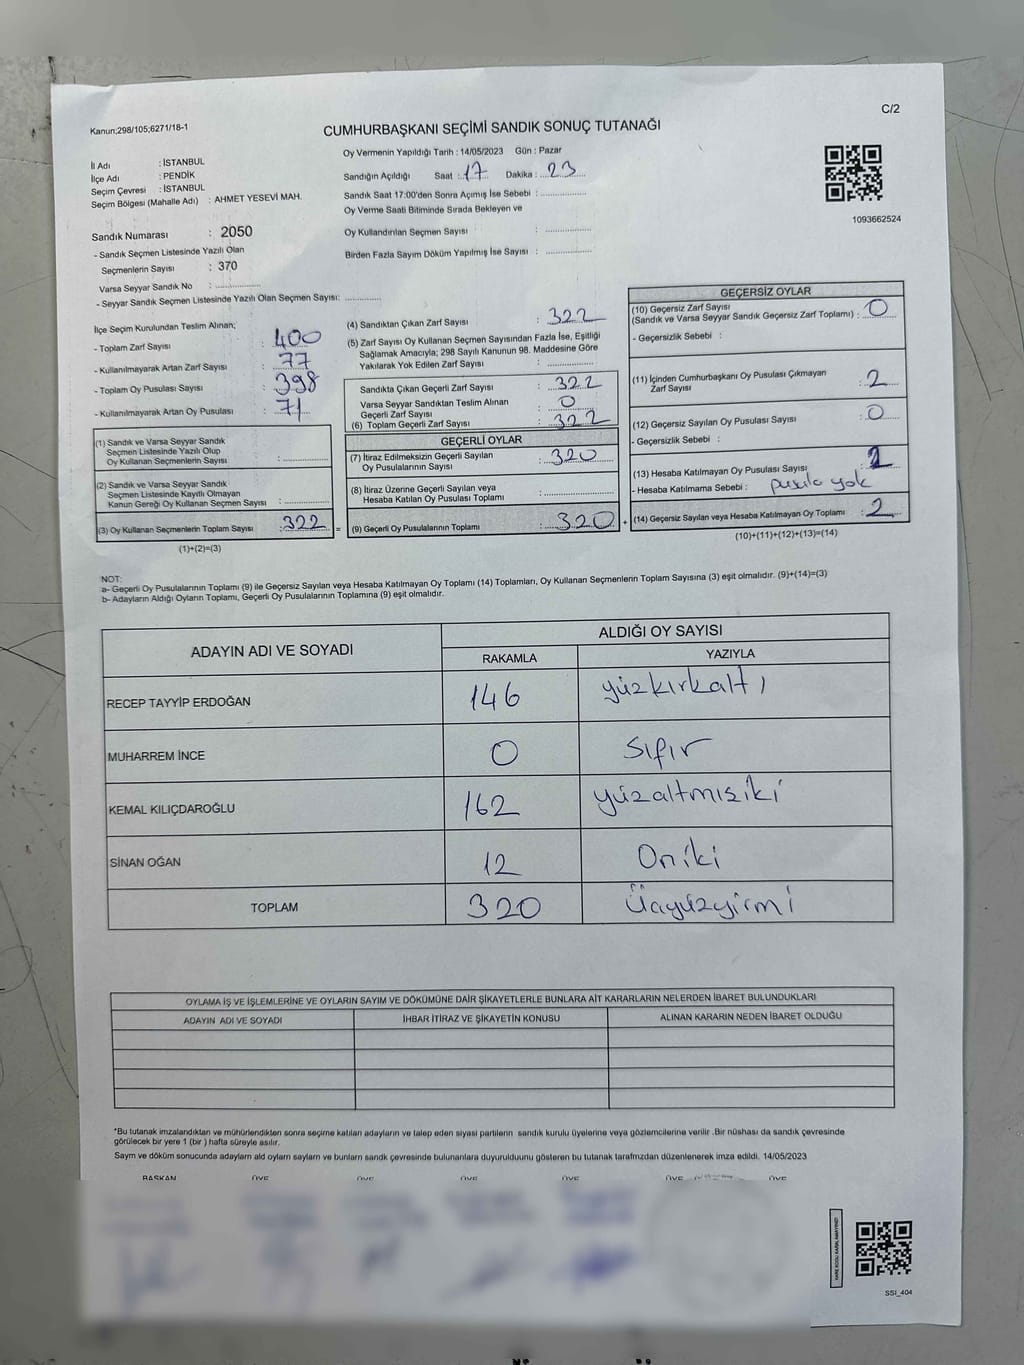 C/2
Kanun;298/105;6271/18-1
CUMHURBAŞKANI SEÇİMİ SANDIK SONUÇ TUTANAĞI
İl Adı : İSTANBUL
İlçe Adı : PENDİK
Seçim Çevresi : İSTANBUL
Seçim Bölgesi (Mahalle Adı) : AHMET YESEVİ MAH.
Oy Vermenin Yapıldığı Tarih : 14/05/2023 Gün : Pazar
Sandığın Açıldığı Saat : 17 Dakika : 23
Sandık Saat 17:00'den Sonra Açımış İse Sebebi :
Oy Verme Saati Bitiminde Sırada Bekleyen ve
Oy Kullandırılan Seçmen Sayısı :
Birden Fazla Sayım Döküm Yapılmış İse Sayısı :
1093662524
Sandık Numarası : 2050
- Sandık Seçmen Listesinde Yazılı Olan
Seçmenlerin Sayısı : 370
Varsa Seyyar Sandık No :
- Seyyar Sandık Seçmen Listesinde Yazılı Olan Seçmen Sayısı:
İlçe Seçim Kurulundan Teslim Alınan;
- Toplam Zarf Sayısı : 400
- Kullanılmayarak Artan Zarf Sayısı : 77
- Toplam Oy Pusulası Sayısı : 398
- Kullanılmayarak Artan Oy Pusulası : 71
(1) Sandık ve Varsa Seyyar Sandık
Seçmen Listesinde Yazılı Olup
Oy Kullanan Seçmenlerin Sayısı :
(2) Sandık ve Varsa Seyyar Sandık
Seçmen Listesinde Kayıtlı Olmayan
Kanun Gereği Oy Kullanan Seçmen Sayısı :
(3) Oy Kullanan Seçmenlerin Toplam Sayısı : 322 =
(1)+(2)=(3)
(4) Sandıktan Çıkan Zarf Sayısı : 322
(5) Zarf Sayısı Oy Kullanan Seçmen Sayısından Fazla İse, Eşitliği
Sağlamak Amacıyla; 298 Sayılı Kanunun 98. Maddesine Göre
Yakılarak Yok Edilen Zarf Sayısı :
Sandıkta Çıkan Geçerli Zarf Sayısı : 322
Varsa Seyyar Sandıktan Teslim Alınan
Geçerli Zarf Sayısı : 0
(6) Toplam Geçerli Zarf Sayısı : 322
GEÇERLİ OYLAR
(7) İtiraz Edilmeksizin Geçerli Sayılan
Oy Pusulalarının Sayısı : 320
(8) İtiraz Üzerine Geçerli Sayılan veya
Hesaba Katılan Oy Pusulası Toplamı :
(9) Geçerli Oy Pusulalarının Toplamı : 320 +
GEÇERSİZ OYLAR
(10) Geçersiz Zarf Sayısı
(Sandık ve Varsa Seyyar Sandık Geçersiz Zarf Toplamı) : 0
- Geçersizlik Sebebi :
(11) İçinden Cumhurbaşkanı Oy Pusulası Çıkmayan
Zarf Sayısı : 2
(12) Geçersiz Sayılan Oy Pusulası Sayısı : 0
- Geçersizlik Sebebi :
(13) Hesaba Katılmayan Oy Pusulası Sayısı
- Hesaba Katılmama Sebebi : pusula yok
(14) Geçersiz Sayılan veya Hesaba Katılmayan Oy Toplamı : 2
(10)+(11)+(12)+(13)=(14)
NOT:
a- Geçerli Oy Pusulalarının Toplamı (9) ile Geçersiz Sayılan veya Hesaba Katılmayan Oy Toplamı (14) Toplamları, Oy Kullanan Seçmenlerin Toplam Sayısına (3) eşit olmalıdır. (9)+(14)=(3)
b- Adayların Aldığı Oyların Toplamı, Geçerli Oy Pusulalarının Toplamına (9) eşit olmalıdır.
ADAYIN ADI VE SOYADI
ALDIĞI OY SAYISI
RAKAMLA YAZIYLA
RECEP TAYYİP ERDOĞAN 146 yüzkırkaltı
MUHARREM İNCE 0 sıfır
KEMAL KILIÇDAROĞLU 162 yüzaltmışiki
SİNAN OĞAN 12 Oniki
TOPLAM 320 Üçyüzyirmi
OYLAMA İŞ VE İŞLEMLERİNE VE OYLARIN SAYIM VE DÖKÜMÜNE DAİR ŞİKAYETLERLE BUNLARA AİT KARARLARIN NELERDEN İBARET BULUNDUKLARI
ADAYIN ADI VE SOYADI İHBAR İTİRAZ VE ŞİKAYETİN KONUSU ALINAN KARARIN NEDEN İBARET OLDUĞU
*Bu tutanak imzalandıktan ve mühürlendikten sonra seçime katılan adayların ve talep eden siyasi partilerin sandık kurulu üyelerine veya gözlemcilerine verilir .Bir nüshası da sandık çevresinde
görülecek bir yere 1 (bir ) hafta süreyle asılır.
Sayım ve döküm sonucunda adayların ald oyların sayların ve bunların sandk çevresinde bulunanlara duyurulduunu gösteren bu tutanak tarafmzdan düzenlenerek imza edildi. 14/05/2023
BAŞKAN ÜYE ÜYE ÜYE ÜYE ÜYE ÜYE
SSI_404